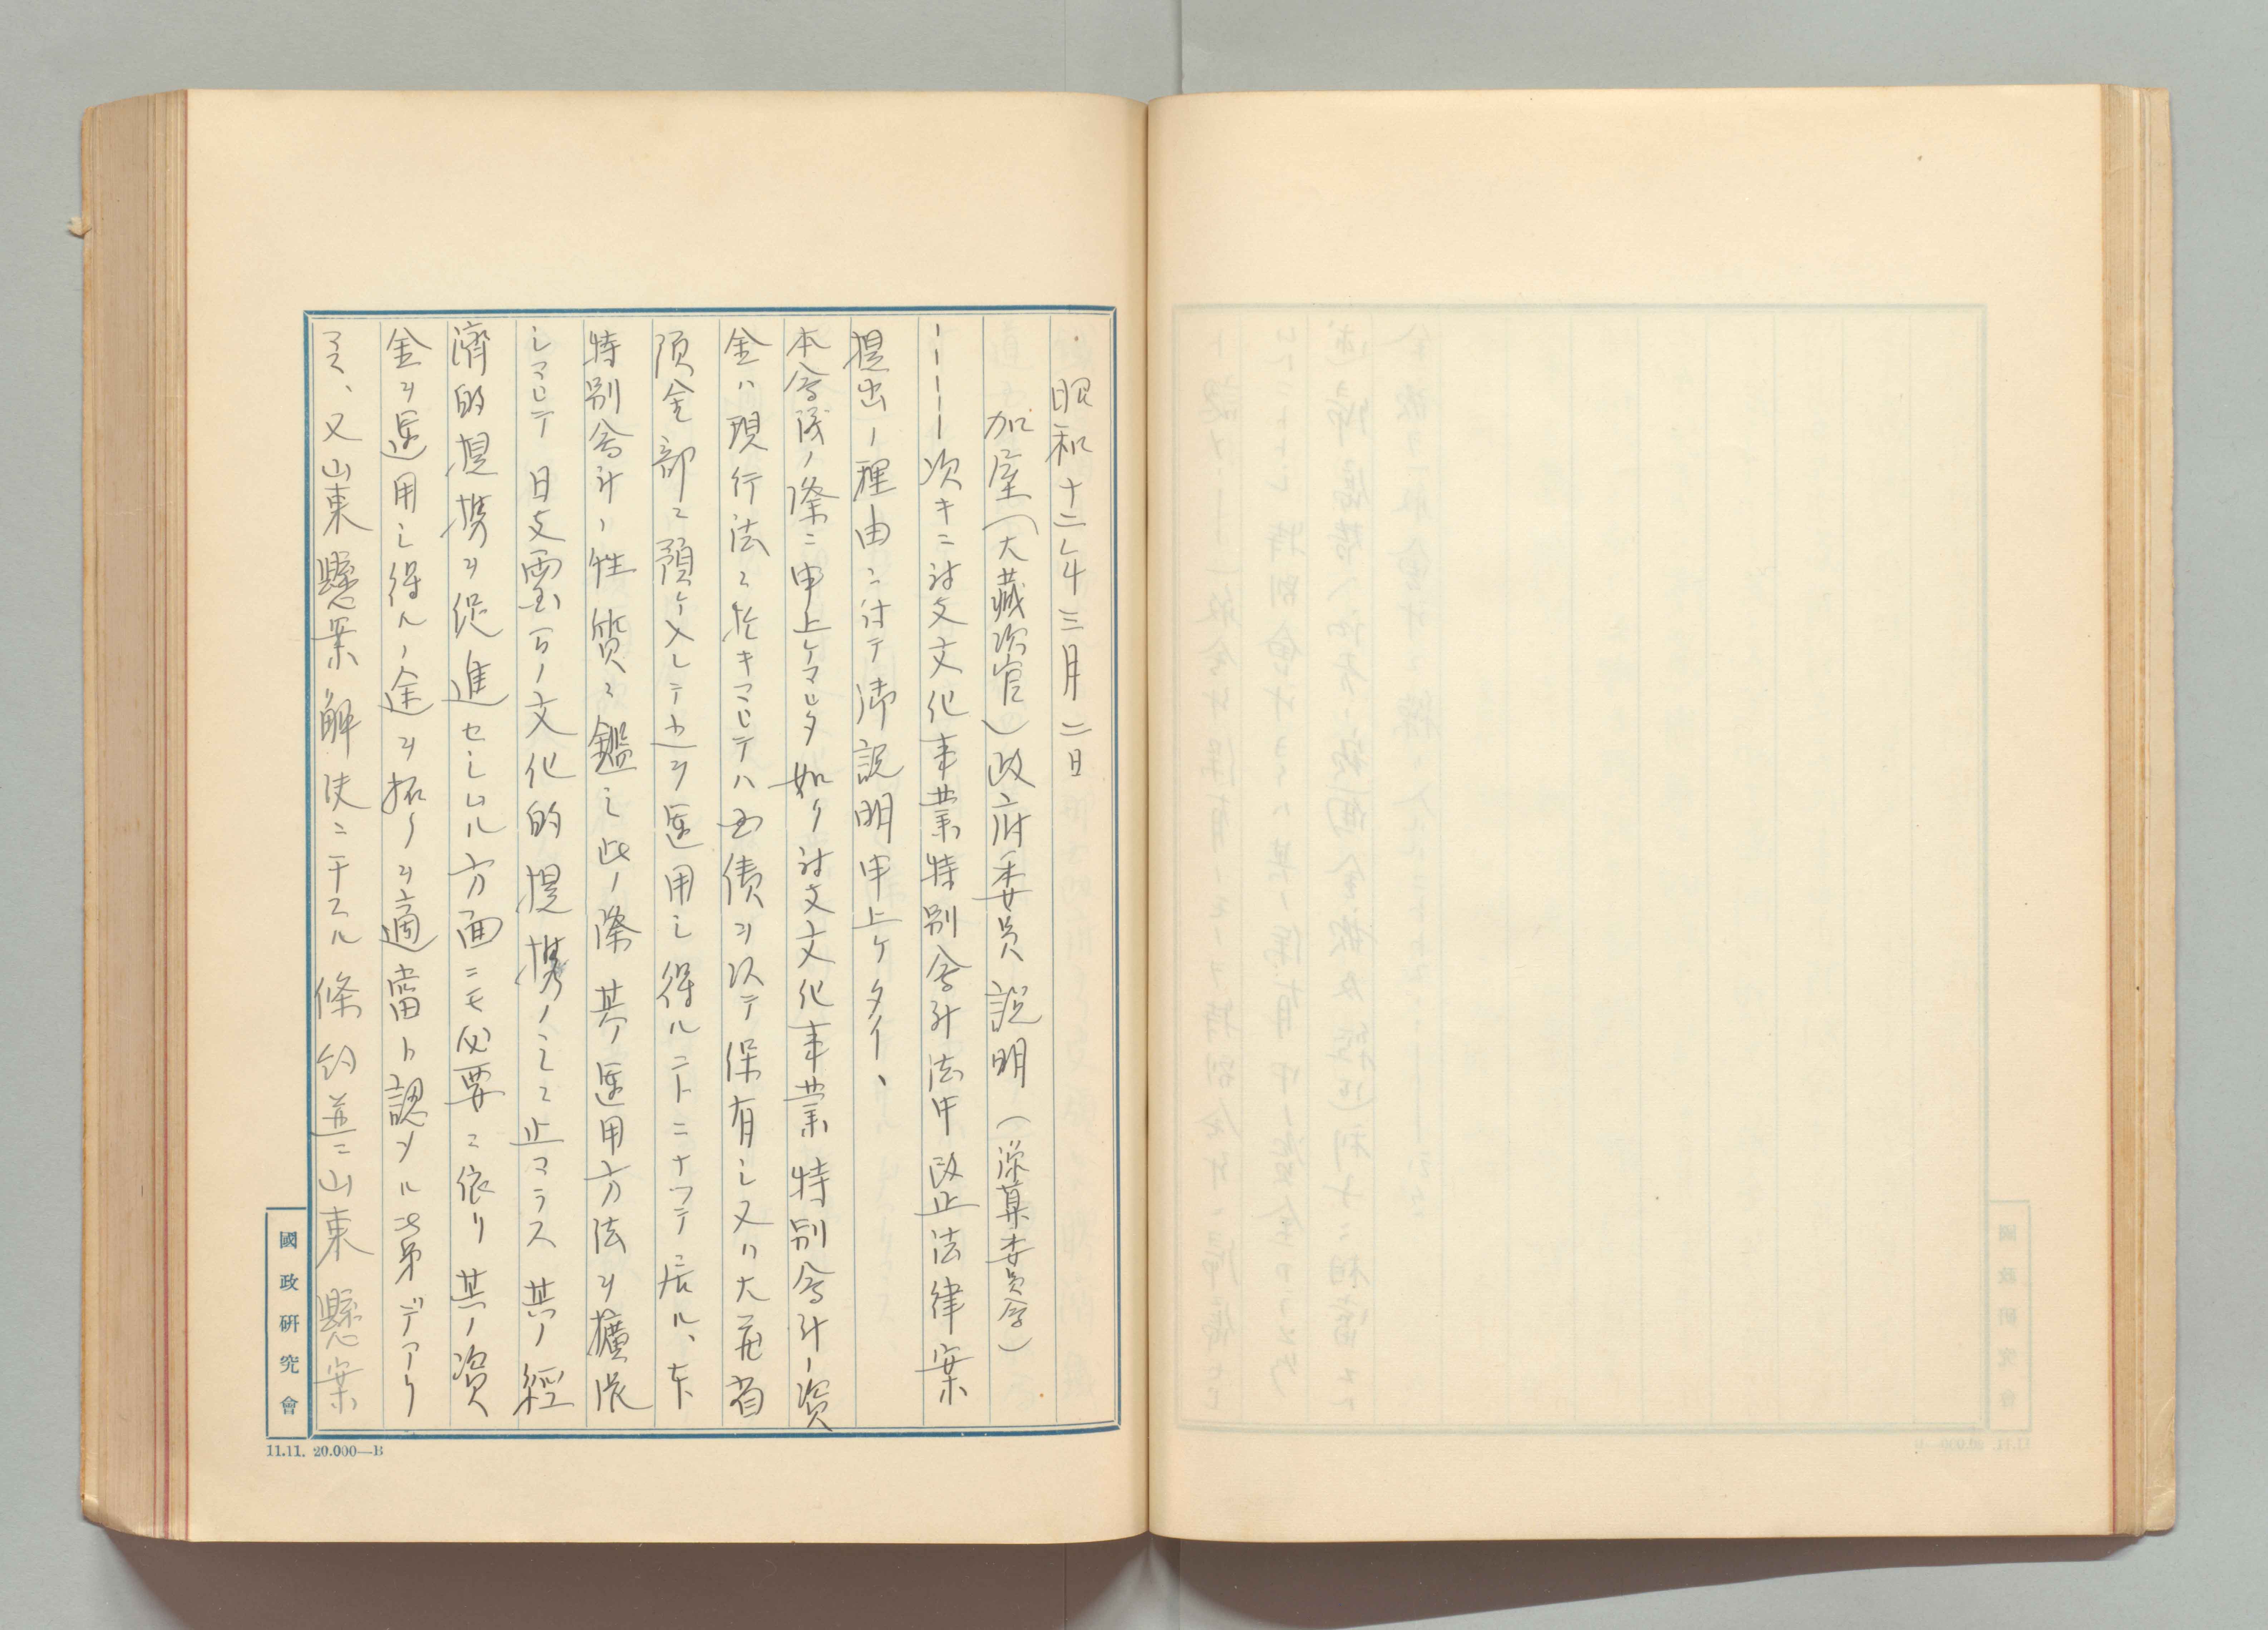 昭和十二年三月二日
加屋(大藏次官)政府委員説明(予算委員会)
――――次キニ対支文化事業特別会計法中改正法律案
提出ノ理由ニ付テ御説明申上ケタイ、
本会議ノ際ニ申上ケマシタ如ク対支文化事業特別会計ノ資
金ハ現行法ニ於キマシテハ国債ヲ以テ保有シ又ハ大蔵省
預金部ニ預ケ入レテ之ヲ運用シ得ルコトニナツテ居ル、本
特別会計ノ性質ニ鑑ミ此ノ際其ノ運用方法ヲ擴張
シマシテ日支両国ノ文化的提携ノミニ止マラス其ノ經
濟的提携ヲ促進セシムル方面ニモ必要ニ依リ其ノ資
金ヲ運用シ得ルノ途ヲ拓クヲ適當ト認ムル次第デアリ
マス、又山東懸案解決ニ干スル條約並ニ山東懸案
國政研究會
11.11. 20.000—B